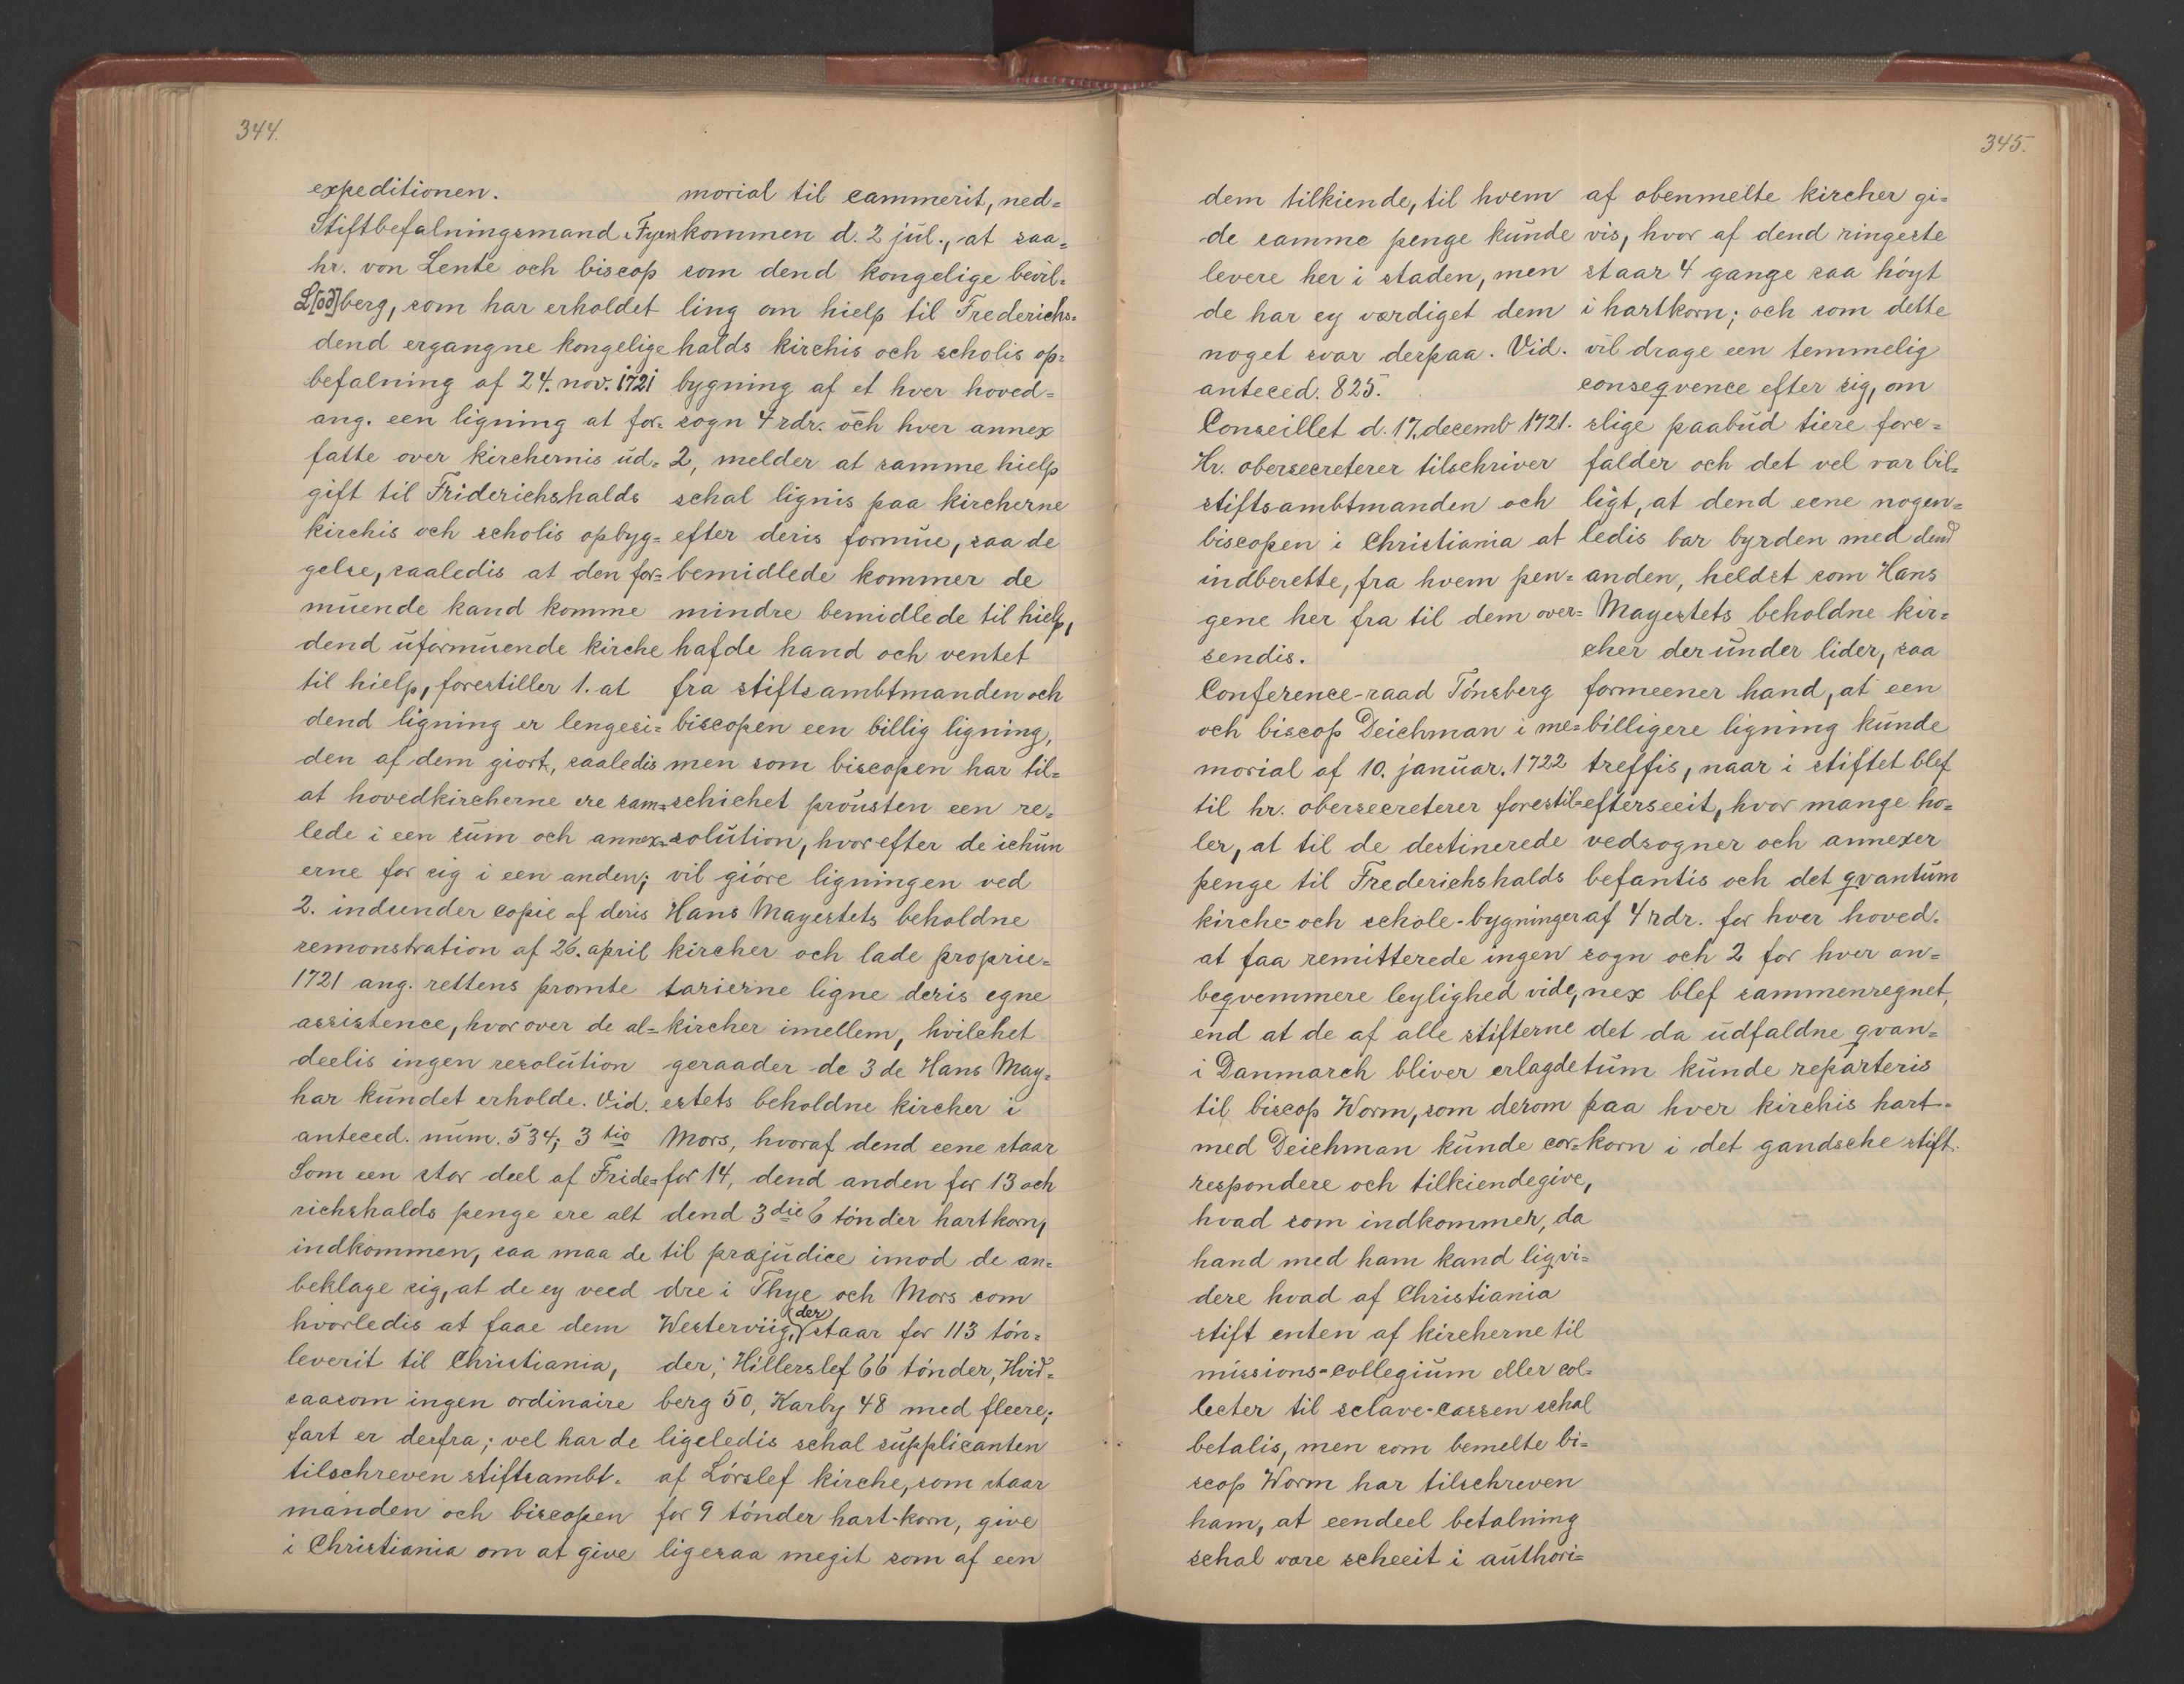 344.
expeditionen.
Stiftbefalningsmand i Fyen
hr. von Lente och biscop
L[od]berg, som har erholdet
dend ergangne kongelige
befalning af 24. nov. 1721
ang. een ligning at for-
fatte over kirchernis ud-
gift til Friderichshalds
kirchis och scholis opbyg-
gelse, saaledis at den for-
muende kand komme
dend uformuende kirche
til hielp, forestiller 1. at
dend ligning er lengesi-
den af dem giort, saaledis
at hovedkircherne ere sam-
lede i een sum och annex-
erne for sig i een anden;
2. indsender copie af deris
remonstration af 26. april
1721 ang. rettens promte
assistence, hvorover de al-
deelis ingen resolution
har kundet erholde. Vid.
anteced. num. 534; 3 tio
Som een stor deel af Fride-
richshalds penge ere alt
indkommen, saa maa de
beklage sig, at de ey veed
hvorledis at faae dem
leverit til Christiania,
saasom ingen ordinaire
fart er desfra; vel har de
tilschreven stiftsambt-
manden och biscopen
i Christiania om at give
morial til cammerit, ned-
kommen d. 2 jul., at saa-
som dend kongelige bevil-
ling om hielp til Frederichs-
halds kirchis och scholis op-
bygning af et hver hoved-
sogn 4 rdr. och hver annex
2, melder at samme hielp
schal lignis paa kircherne
efter deris formue, saa de
bemidlede kommer de
mindre bemidlede til hielp,
hafde hand och ventet
fra stiftsambtmanden och
biscopen een billig ligning,
men som biscopen har til-
schichet prousten een re-
solution, hvorefter de ichun
vil gióre ligningen ved
Hans Mayestets beholdne
kircher och lade proprie-
tarierne ligne deris egne
kircher imellem, hvilchet
geraader de 3 de Hans May-
estets beholdne kircher i
Mors, hvoraf dend eene staar
for 14, dend anden for 13 och
dend 3 die 6 tónder hartkorn,
til præjudice imod de an-
dre i Thye och Mors som
Westerviig, der staar for 113 tón-
der; Hillerslef 66 tónder, Hvid-
berg 50, Karby 48 med fleere;
ligeledis schal supplicanten
af Lórslef kirche, som staar
for 9 tónder hart-korn, give
ligesaa megit som af een
345.
dem tilkiende, til hvem
de samme penge kunde
levere her i staden, men
de har ey værdiget dem
noget svar derpaa. Vid.
anteced. 825.
Conseillet d. 17. decemb 1721.
Hr. obersecreterer tilschriver
stiftsambtmanden och
biscopen i Christiania at
indberette, fra hvem pen-
gene her fra til dem over-
sendis.
Conference-raad Tónsberg
och biscop Deichman i me-
morial af 10. januar. 1722
til hr. obersecreterer forestil-
ler, at til de destinerede
penge til Frederichshalds
kirche- och schole-bygninger
at faa remitterede ingen
beqvemmere leylighed vide,
end at de af alle stifterne
i Danmarch bliver erlagde
til biscop Worm, som derom
med Deichman kunde cor-
respondere och tilkiendegive,
hvad som indkommer, da
hand med ham kand liqvi-
dere hvad af Christiania
stift enten af kircherne til
missions-collegium eller col-
lecter til sclave-cassen schal
betalis, men som bemelte bi-
scop Worm har tilschreven
ham, at eendeel betalning
schal vare scheeit i authori-
af obenmelte kircher gi-
vis, hvor af dend ringeste
staar 4 gange saa hóyt
i hartkorn; och som dette
vil drage een temmelig
conseqvence efter sig, om
slige paabud tiere fore-
falder och det vel var bil-
ligt, at dend eene nogen-
ledis bar byrden med dend
anden, heldst som Hans
Mayestets beholdne kir-
cher derunder lider, saa
formeener hand, at een
billigere ligning kunde
treffis, naar i stiftet blef
efterseeit, hvor mange ho-
vedsogner och annexer
befantis och det qvantum
af 4 rdr. for hver hoved-
sogn och 2 for hver an-
nex blef sammenregnet,
det da udfaldne qvan-
tum kunde reparteris
paa hver kirchis hart-
korn i det gandsche stift.